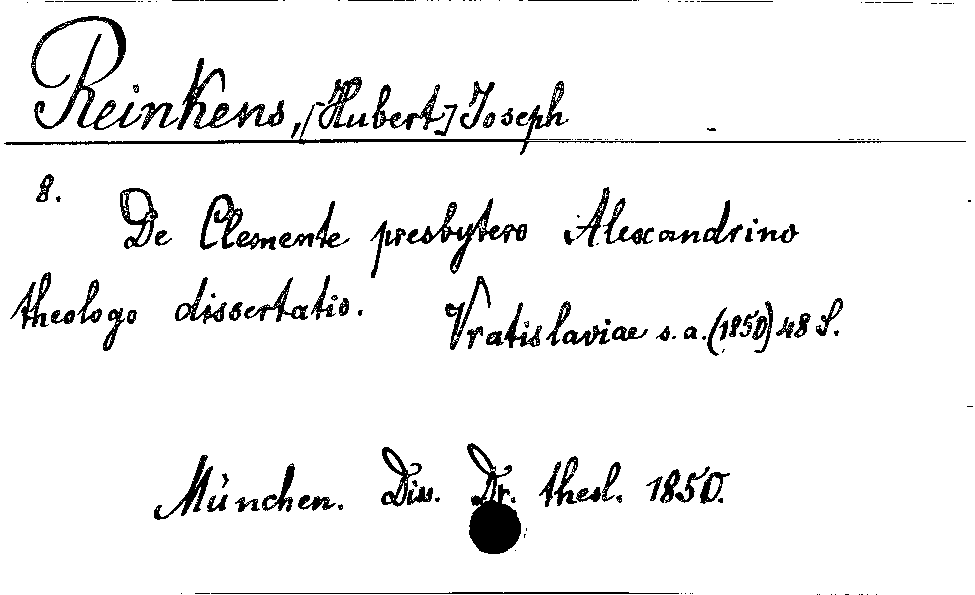 Reinkens, [Hubert] Joseph
8.
De Clemente presbytero Alexandrino
theologo dissertatio. Vratislaviae s. a. (1850) 48 S.
München. Diss. Dr. theol. 1850.